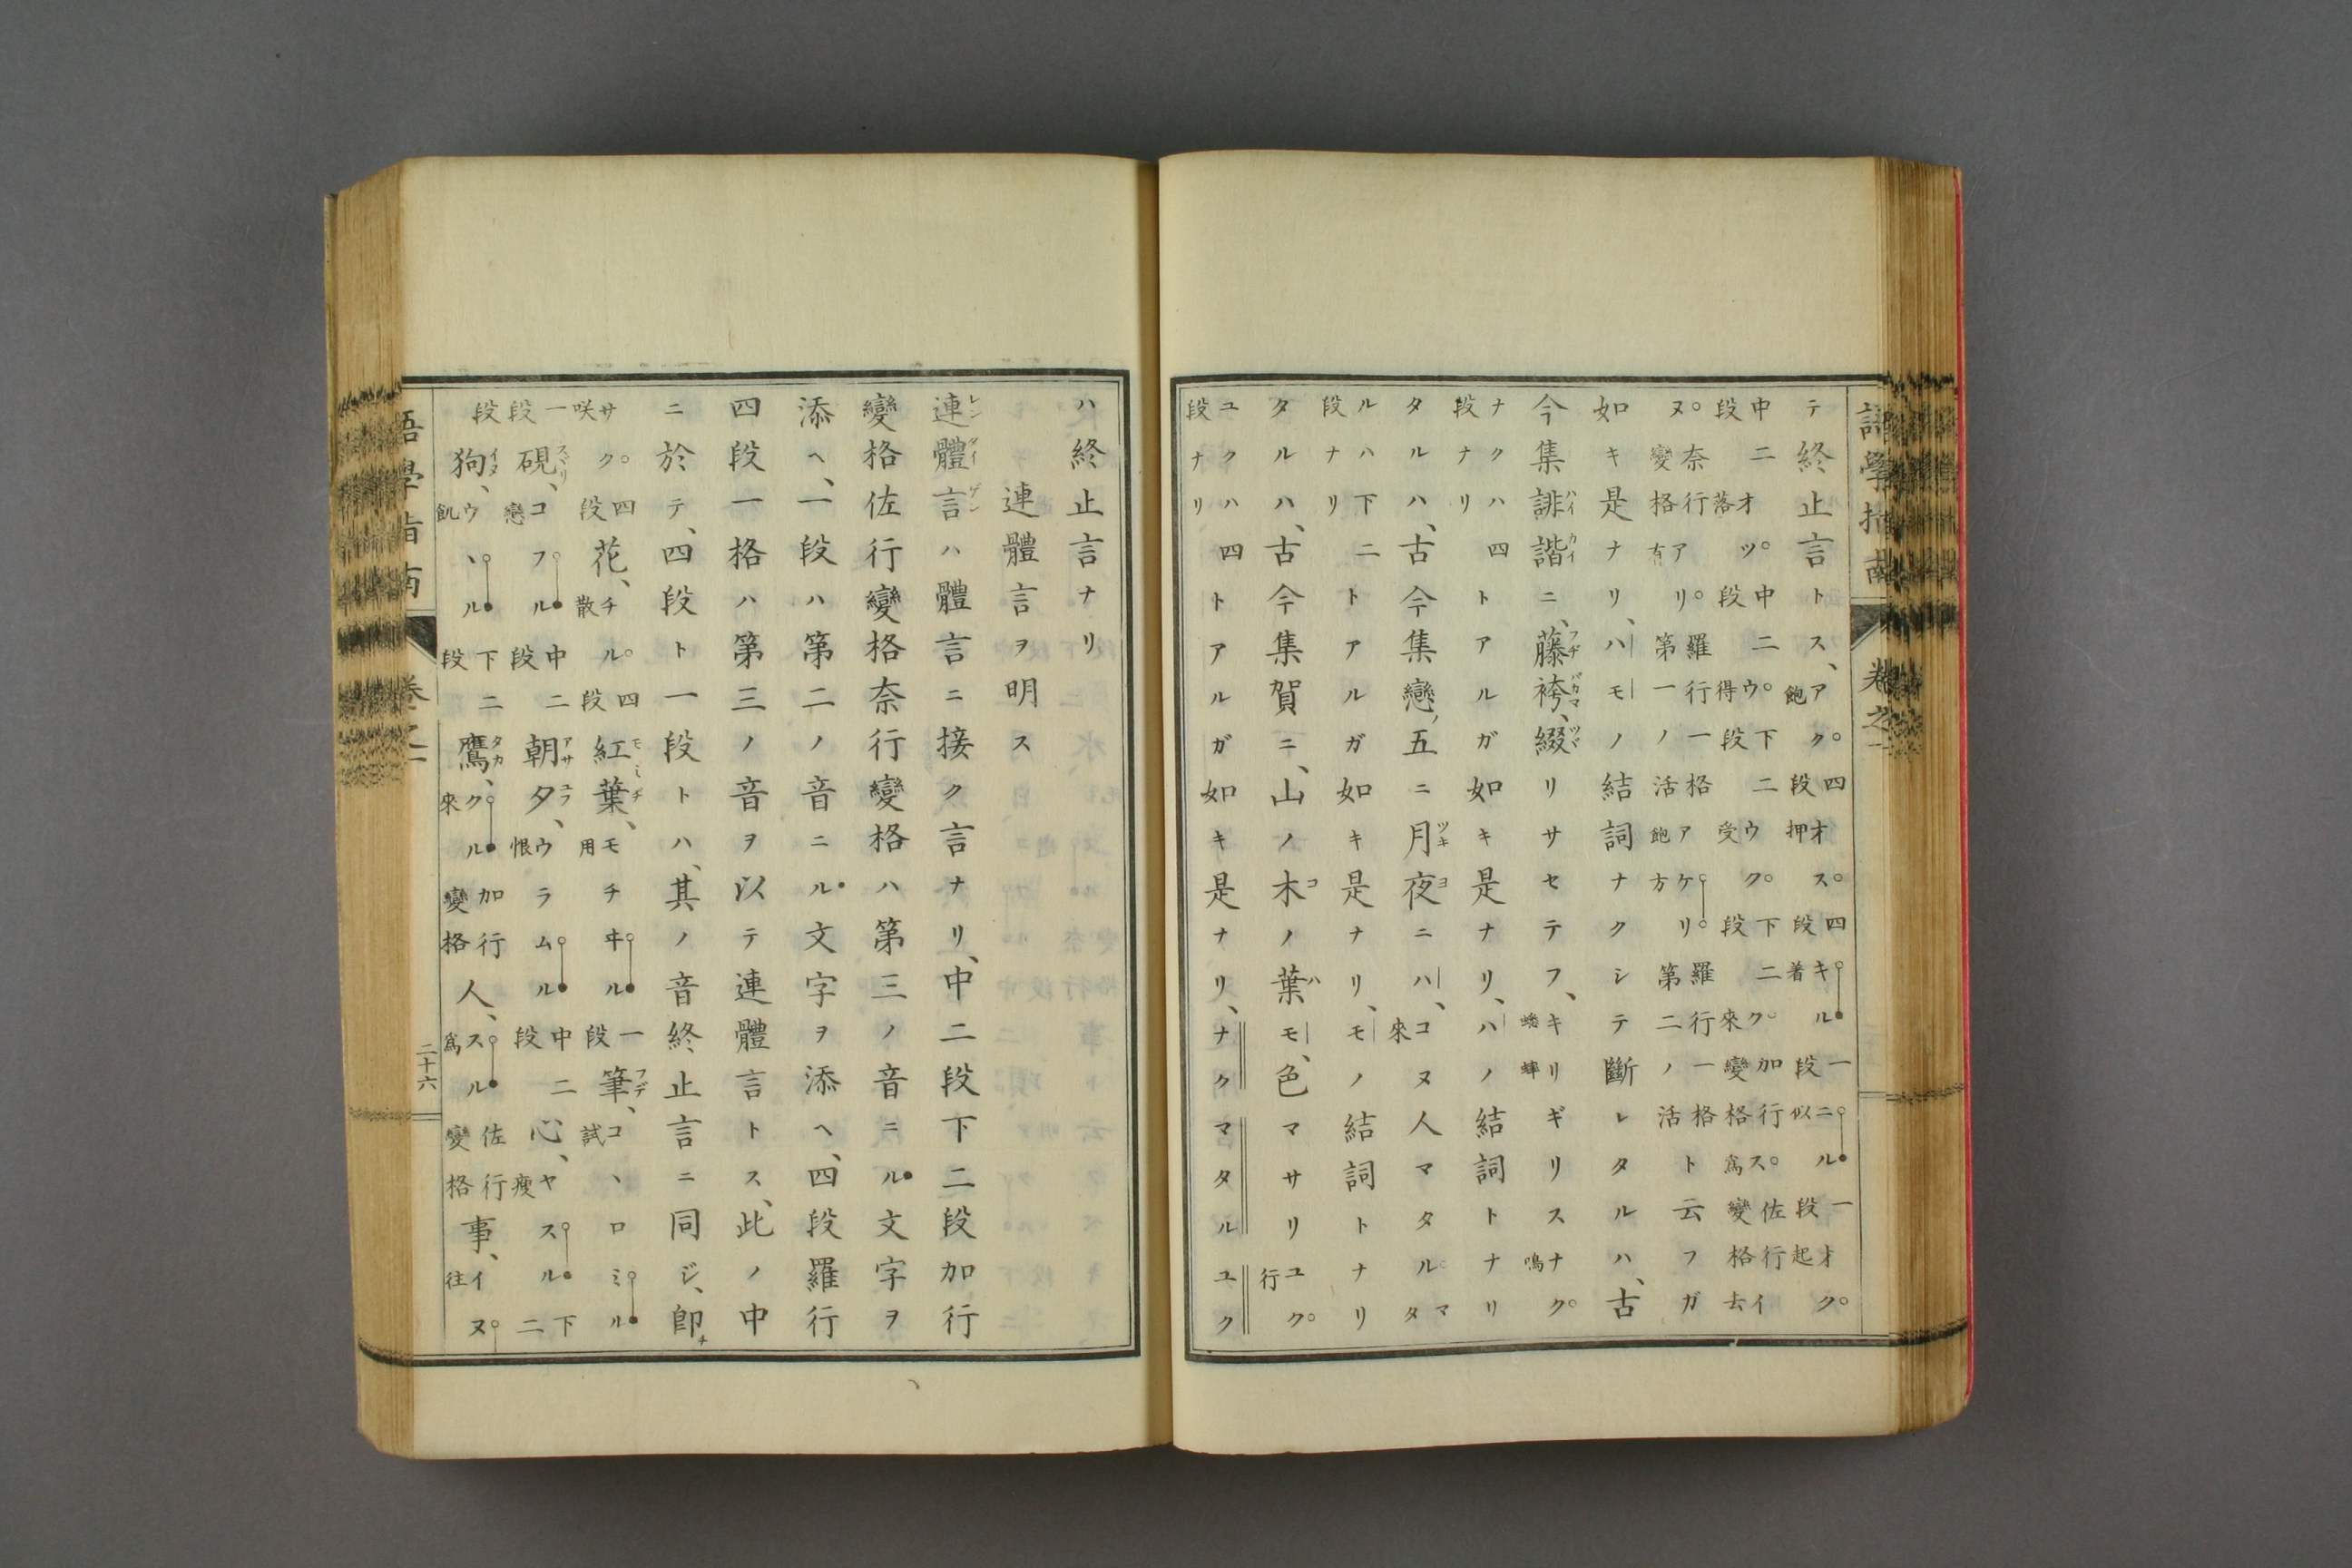 語學指南 卷之一
テ終止言トス、アク飽四段オス押四段キル着一段ニル似一段オク起
中二段オツ落中二段ウ得下二段ウク受下二段ク來加行變格ス爲佐行變格イ去
ヌ奈行變格アリ有羅行一格第一ノ活アケリ飽方羅行一格第二ノ活ト云フガ
如キ是ナリ、ハモノ結詞ナクシテ斷レタルハ、古
今集誹諧ニ、藤袴、綴リサセテフ、キリギリス蟋蟀ナク鳴
ナクハ四段ナリトアルガ如キ是ナリ、ハノ結詞トナリ
タルハ、古今集戀、五ニ月夜ニハ、コヌ來人マタルマタ
ルハ下二段ナリトアルガ如キ是ナリ、モノ結詞トナリ
タルハ、古今集賀ニ、山ノ木ノ葉モ、色マサリユク行
ユクハ四段ナリトアルガ如キ是ナリ、ナクマタルユク
ハ終止言ナリ
連體言ヲ明ス
連體言ハ體言ニ接ク言ナリ、中二段下二段加行
變格佐行變格奈行變格ハ第三ノ音ニル文字ヲ
添ヘ、一段ハ第二ノ音ニル文字ヲ添ヘ、四段羅行
四段一格ハ第三ノ音ヲ以テ連體言トス、此ノ中
ニ於テ、四段ト一段トハ、其ノ音終止言ニ同ジ、卽チ
サク咲四段花、チル散四段紅葉、モチヰル用一段筆、コヽロミル試
一段硯、コフル戀中二段朝夕、ウラムル恨中二段心、ヤスル瘦下二
段狗、ウヽル飢下二段鷹、クル來加行變格人、スル爲佐行變格事、イヌ往
語學指南 卷之一 二十六